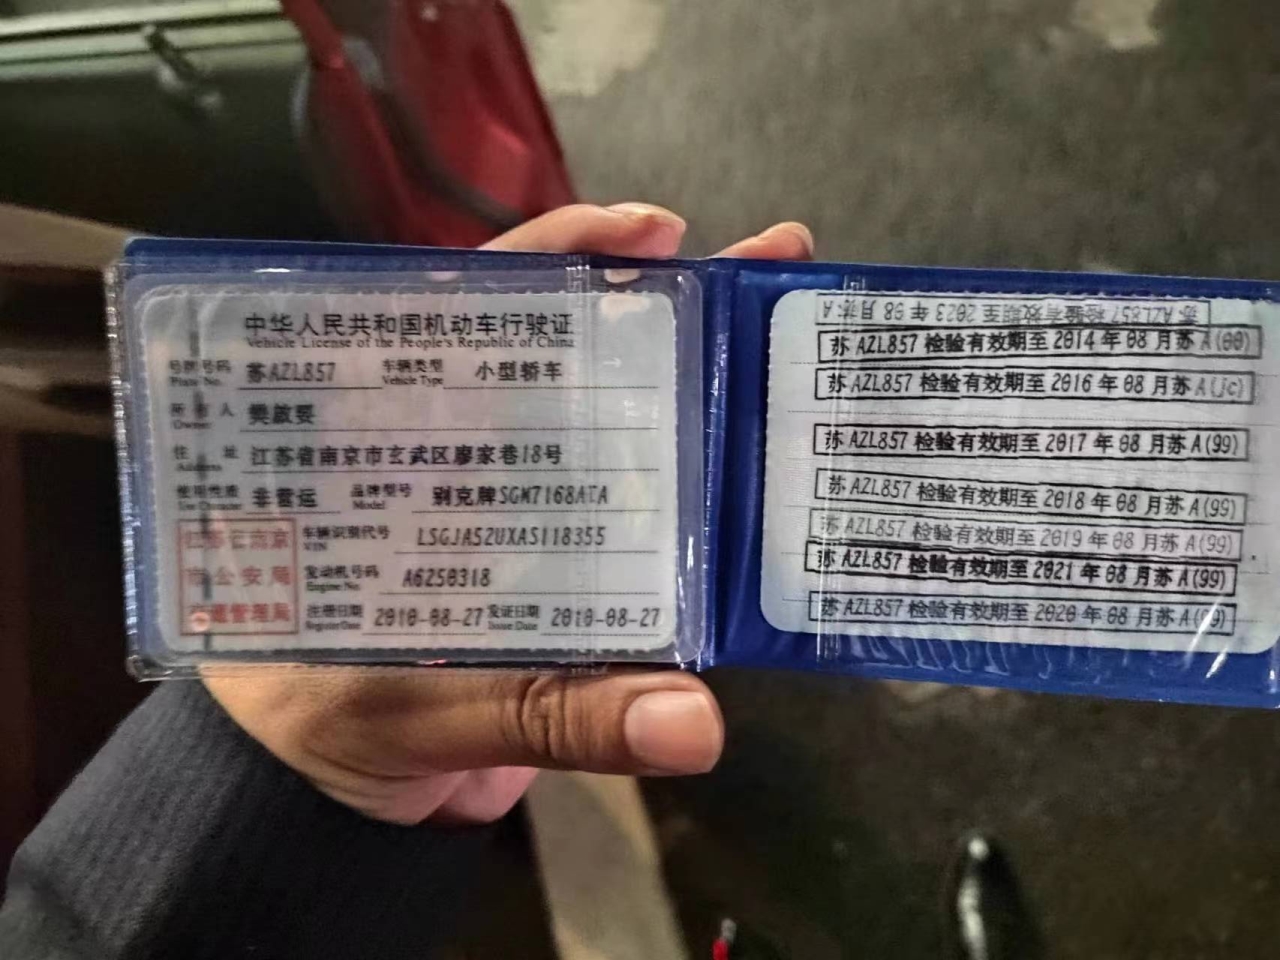 中华人民共和国机动车行驶证
Vehicle License of the People's Republic of China
号牌号码 Plate No. 苏AZL857 车辆类型 Vehicle Type 小型轿车
所有人 Owner 樊啟要
住址 Address 江苏省南京市玄武区廖家巷18号
使用性质 Use Character 非营运 品牌型号 Model 别克牌SGM7168ATA
江苏省南京 车辆识别代号 VIN LSGJA52UXAS118355
市公安局 发动机号码 Engine No. A6250318
交通管理局 注册日期 Register Date 2010-08-27 发证日期 Issue Date 2010-08-27
苏AZL857 检验有效期至 2023 年 08 月 苏A
苏 AZL857 检验有效期至 2014 年 08 月苏 A(00)
苏 AZL857 检验有效期至 2016 年 08 月苏 A(jc)
苏 AZL857 检验有效期至 2017 年 08 月苏 A(99)
苏 AZL857 检验有效期至 2018 年 08 月苏 A(99)
苏 AZL857 检验有效期至 2019 年 08 月苏 A(99)
苏 AZL857 检验有效期至 2021 年 08 月苏 A(99)
苏 AZL857 检验有效期至 2020 年 08 月苏 A(99)